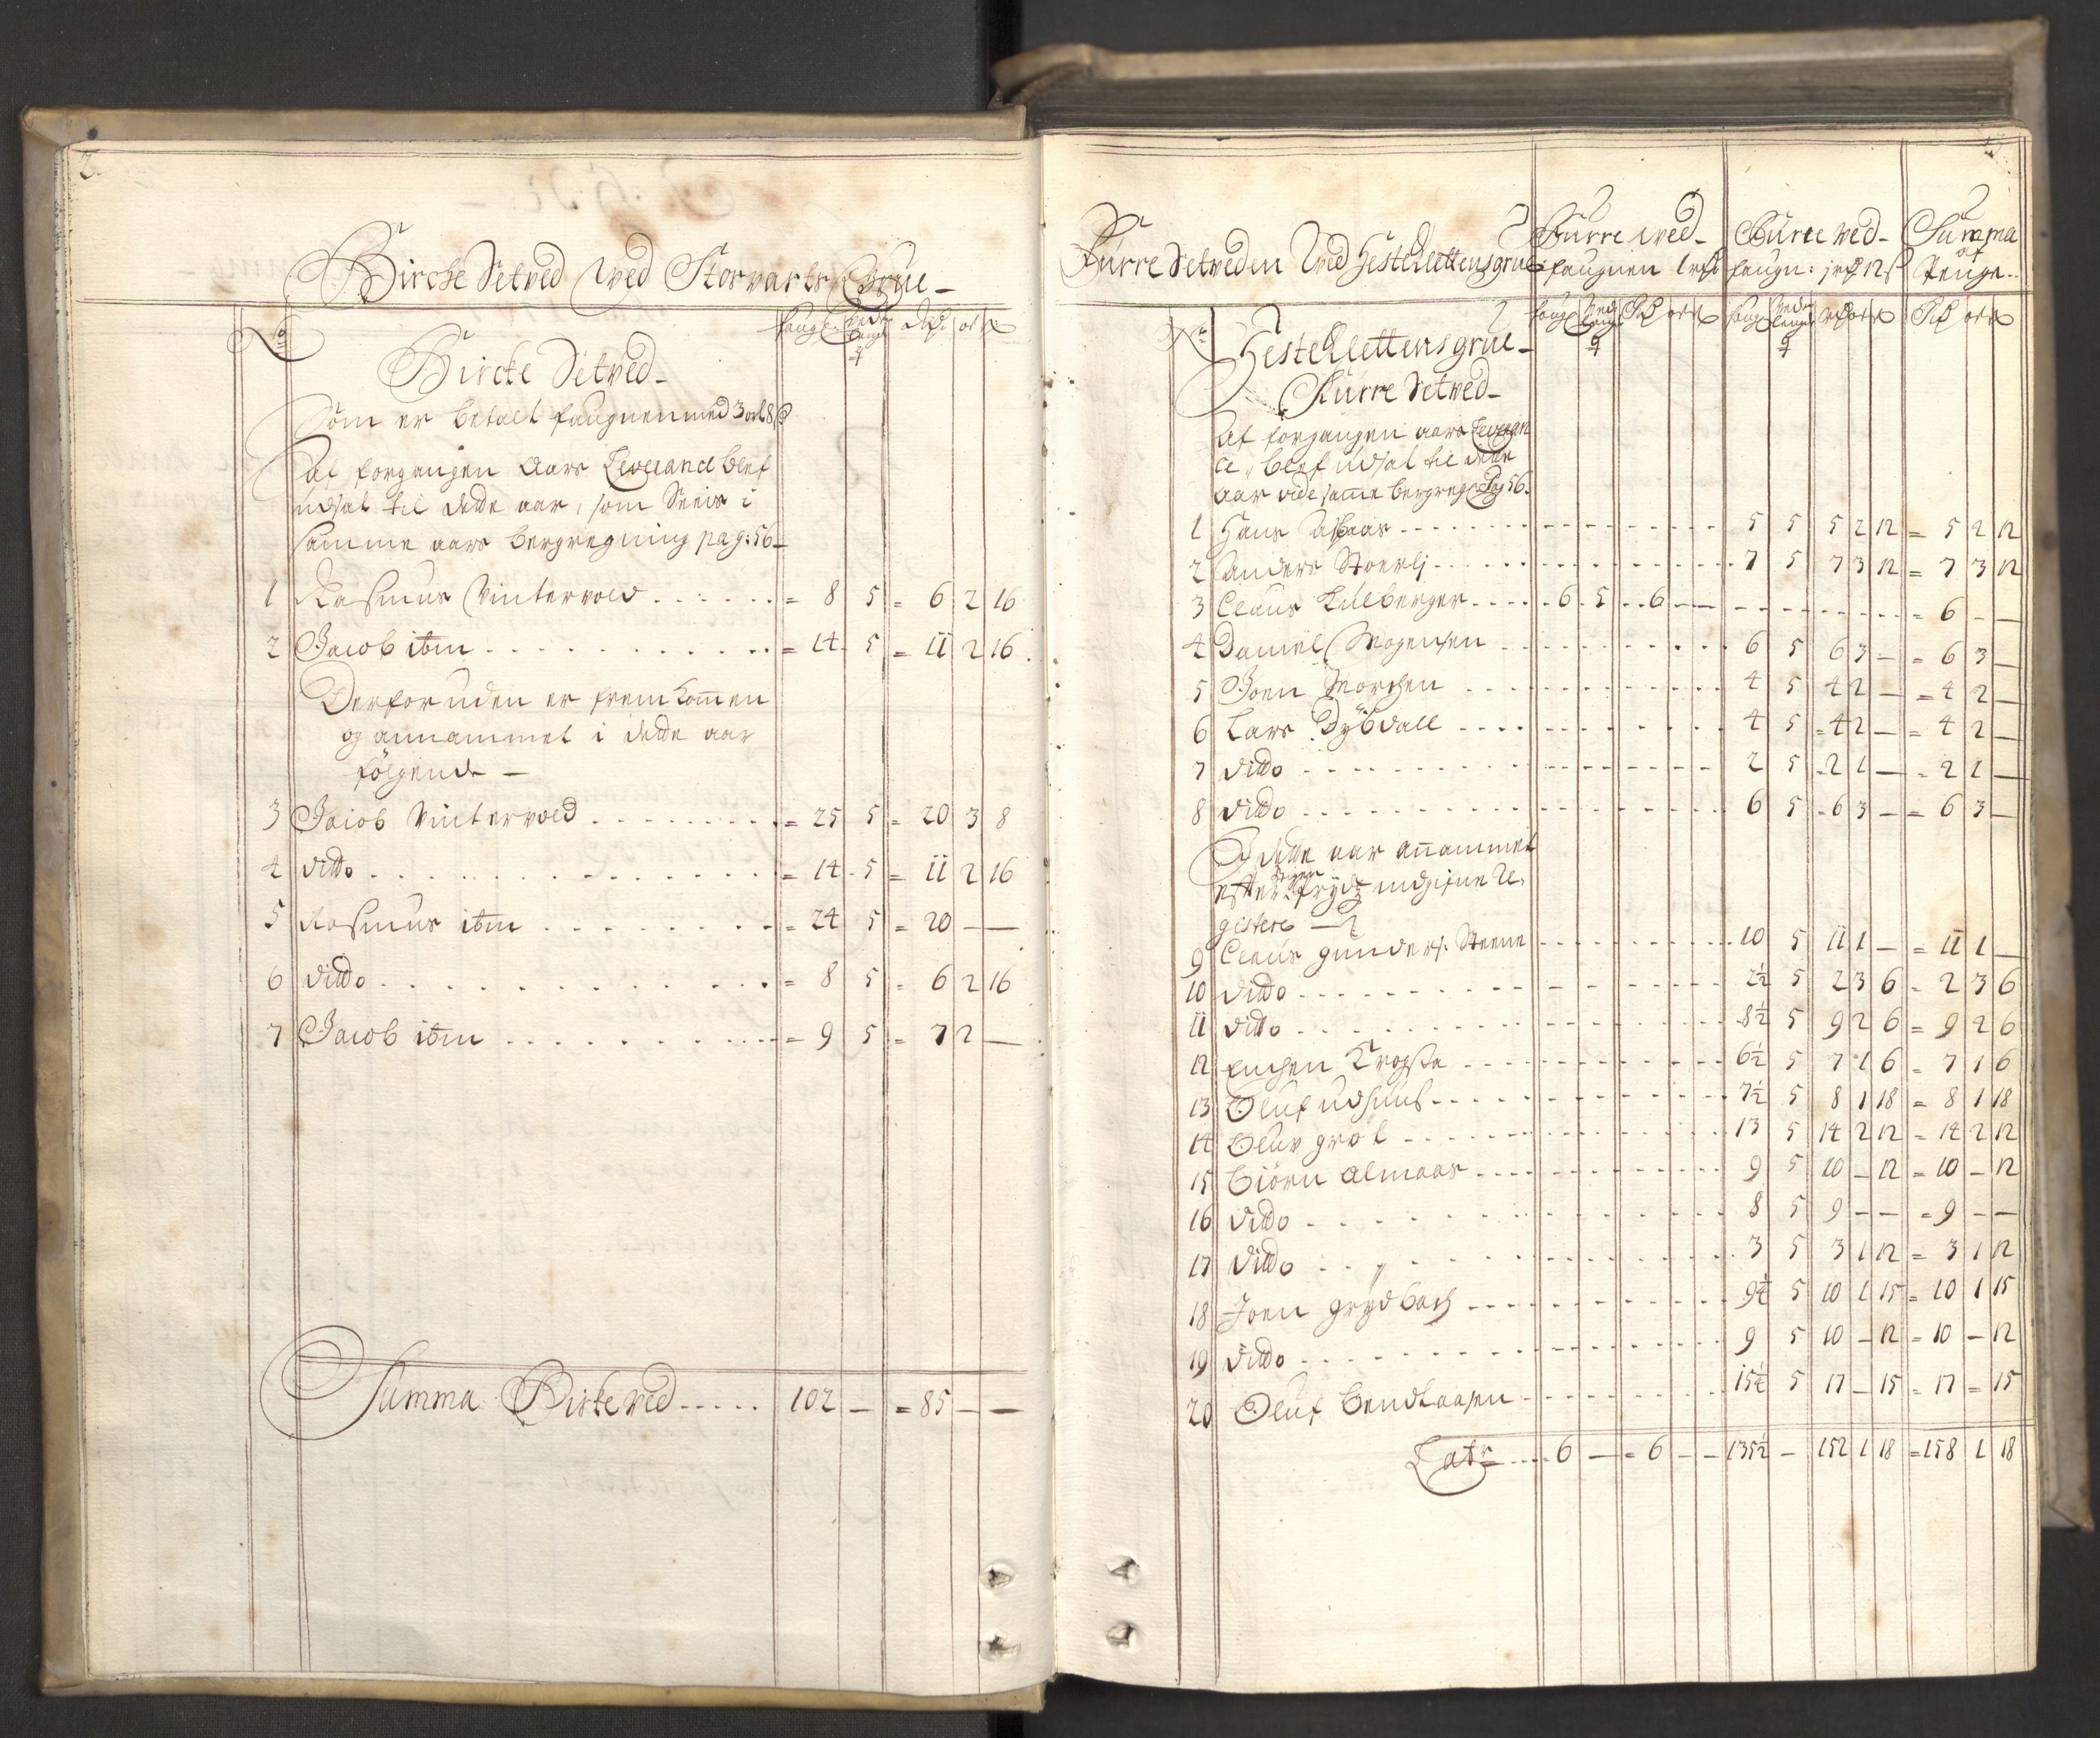 2
Birche Setved Ved Storvarts Grue
No
faugn: Vedens lengde q Rdr: ort ß
Bircke Setved
Som er betalt faugnen med 3 ort 8 ß
Af forgangen Aars Leverance blef
udsat til dette aar, som Seeis i
samme aars bergregning pag: 56
1 Rasmus Vintervold = 8 5 = 6 2 16
2 Jacob ibm = 14 5 = 11 2 16
Derforuden er frem kommen
og annammet i dette aar
følgende
3 Jacob Vintervold = 25 5 = 20 3 8
4 ditto = 14 5 = 11 2 16
5 Rasmus ibm = 24 5 = 20 — —
6 ditto = 8 5 = 6 2 16
7 Jacob ibm = 9 5 = 7 2 —
Summa Birke ved 102 — = 85 — —
Furre Setveden Ved Hestklettens grue
Furre ved Furre ved Summa
faugnen 1 rdr faugn: 1 rdr 12 ß af Penge
No
Hestklettens grue
Furre Setved
Af forgangen aars Leveran
ce, blef udsat til dette
aar vide samme bergregn: Pag 56.
1 Hans Aspaas 5 5 5 2 12 = 5 2 12
2 Anders Stoerlj 7 5 7 3 12 = 7 3 12
3 Claus Lilleberger 6 5 6 — — = 6 — —
4 Daniel Mogensen 6 5 6 3 — = 6 3 —
5 Joen Morchen 4 5 4 2 — = 4 2 —
6 Lars Dybdall 4 5 = 4 2 — = 4 2 —
7 ditto 2 5 = 2 1 — = 2 1 —
8 ditto 6 5 = 6 3 — = 6 3 —
I dette aar annammet
efter indgifne Re,
gistere
9 Claus gunders: Steene 10 5 11 1 — = 11 1 —
10 ditto 2½ 5 2 3 6 = 2 3 6
11 ditto 8½ 5 9 2 6 = 9 2 6
12 6½ 5 7 1 6 = 7 1 6
13 Oluf udhuus 7½ 5 8 1 18 = 8 1 18
14 Oluv grøt 13 5 14 2 12 = 14 2 12
15 Biörn Almaas 9 5 10 — 12 = 10 — 12
16 ditto 8 5 9 — — = 9 — —
17 ditto 3 5 3 1 12 = 3 1 12
18 Joen grydbach 9¼ 5 10 1 15 = 10 1 15
19 ditto 9 5 10 — 12 = 10 — 12
20 Oluf Bendtaasen 15¼ 5 17 — 15 = 17 = 15
Latr 6 — = 6 — — 135½ — 152 1 18 = 158 1 18